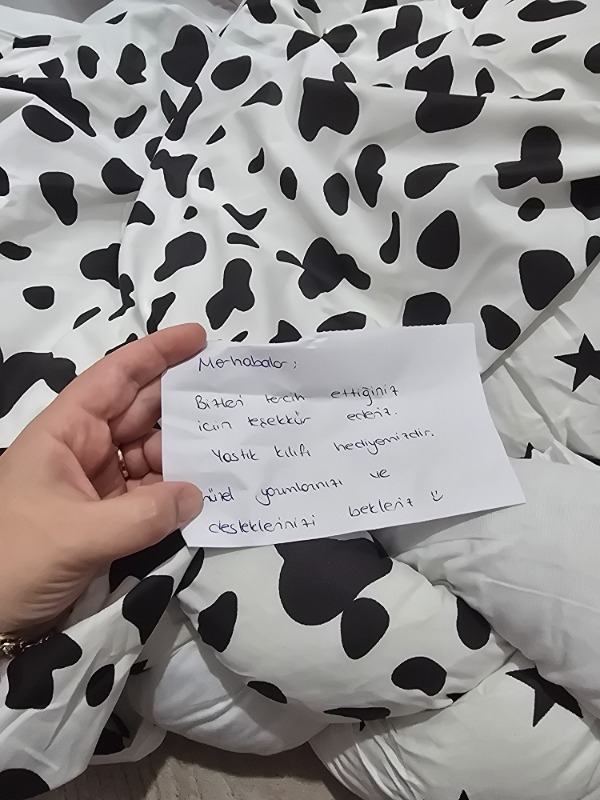 Merhabalar;
Bizleri tercih ettiğiniz
için teşekkür ederiz.
Yastık kılıfı hediyemizdir.
güzel yorumlarınızı ve
desteklerinizi bekleriz